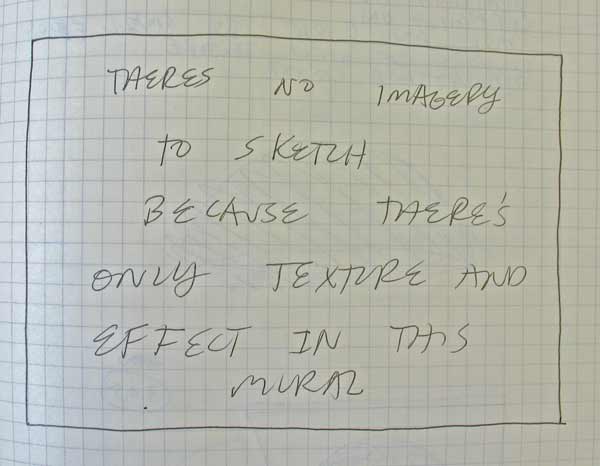 THERES NO IMAGERY
TO SKETCH
BECAUSE THERE'S
ONLY TEXTURE AND
EFFECT IN THIS
MURAL